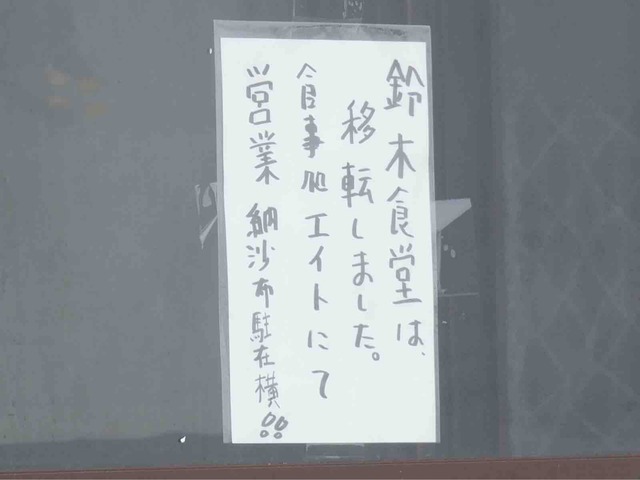 鈴木食堂は、
移転しました。
食事処エイトにて
営業 納沙布駐在横!!